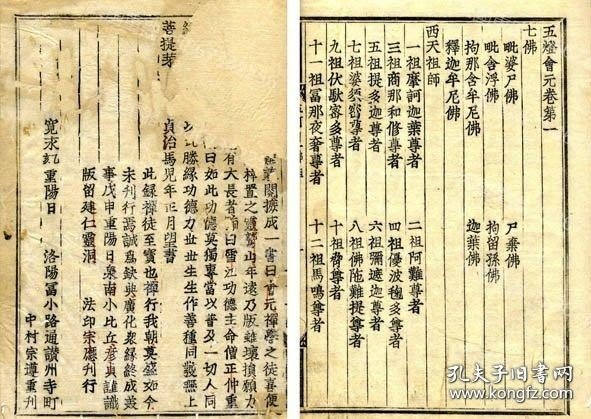 五燈會元卷第一
七佛
毗婆尸佛 尸棄佛
毗舍浮佛 拘留孫佛
拘那含牟尼佛 迦葉佛
釋迦牟尼佛
西天祖師
一祖摩訶迦葉尊者 二祖阿難尊者
三祖商那和修尊者 四祖優波毱多尊者
五祖提多迦尊者 六祖彌遮迦尊者
七祖婆須蜜尊者 八祖佛陀難提尊者
九祖伏馱蜜多尊者 十祖脅尊者
十一祖富那夜奢尊者 十二祖馬鳴尊者
關㨿成一書曰會元禪學之徒喜便
梓置之靈鷲山年遠乃版雖壞損願力
有大長者 曰雷 功德主命僧正仲重
曰如此功德莫獨專當以普及一切人同
勝緣功德力世世生生作善種同證無上
菩提芽
貞治馬兒年正月望書
此錄禪徒至寶也禪行我朝莫盛如今
未刊行焉誠為欽典廣化衆緣終成茲
事戊申重陽日泉南小比丘 謹識
版留建仁靈洞 法印宗應刊行
寬永 重陽日 洛陽冨小路通讃州寺町
中村宗遵重刊
孔夫子旧书网